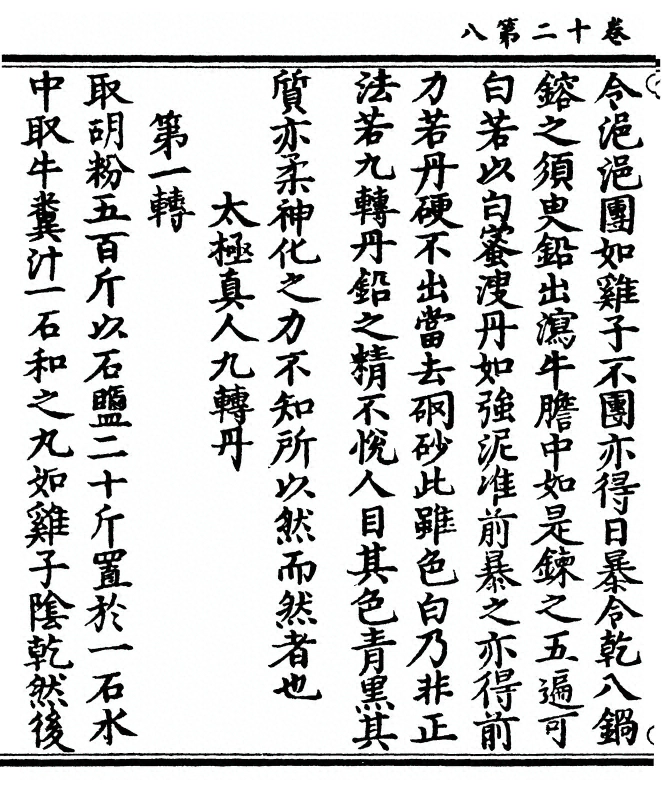 卷十二第八
令浥浥團如雞子不團亦得日暴令乾八鍋
鎔之須臾鉛出瀉牛膽中如是鍊之五遍可
白若以白蜜溲丹如強泥准前暴之亦得前
力若丹硬不出當去硇砂此雖色白乃非正
法若九轉丹鉛之精不悅人目其色青黑其
質亦柔神化之力不知所以然而然者也
太極真人九轉丹
第一轉
取胡粉五百斤以石鹽二十斤置於一石水
中取牛糞汁一石和之丸如雞子陰乾然後